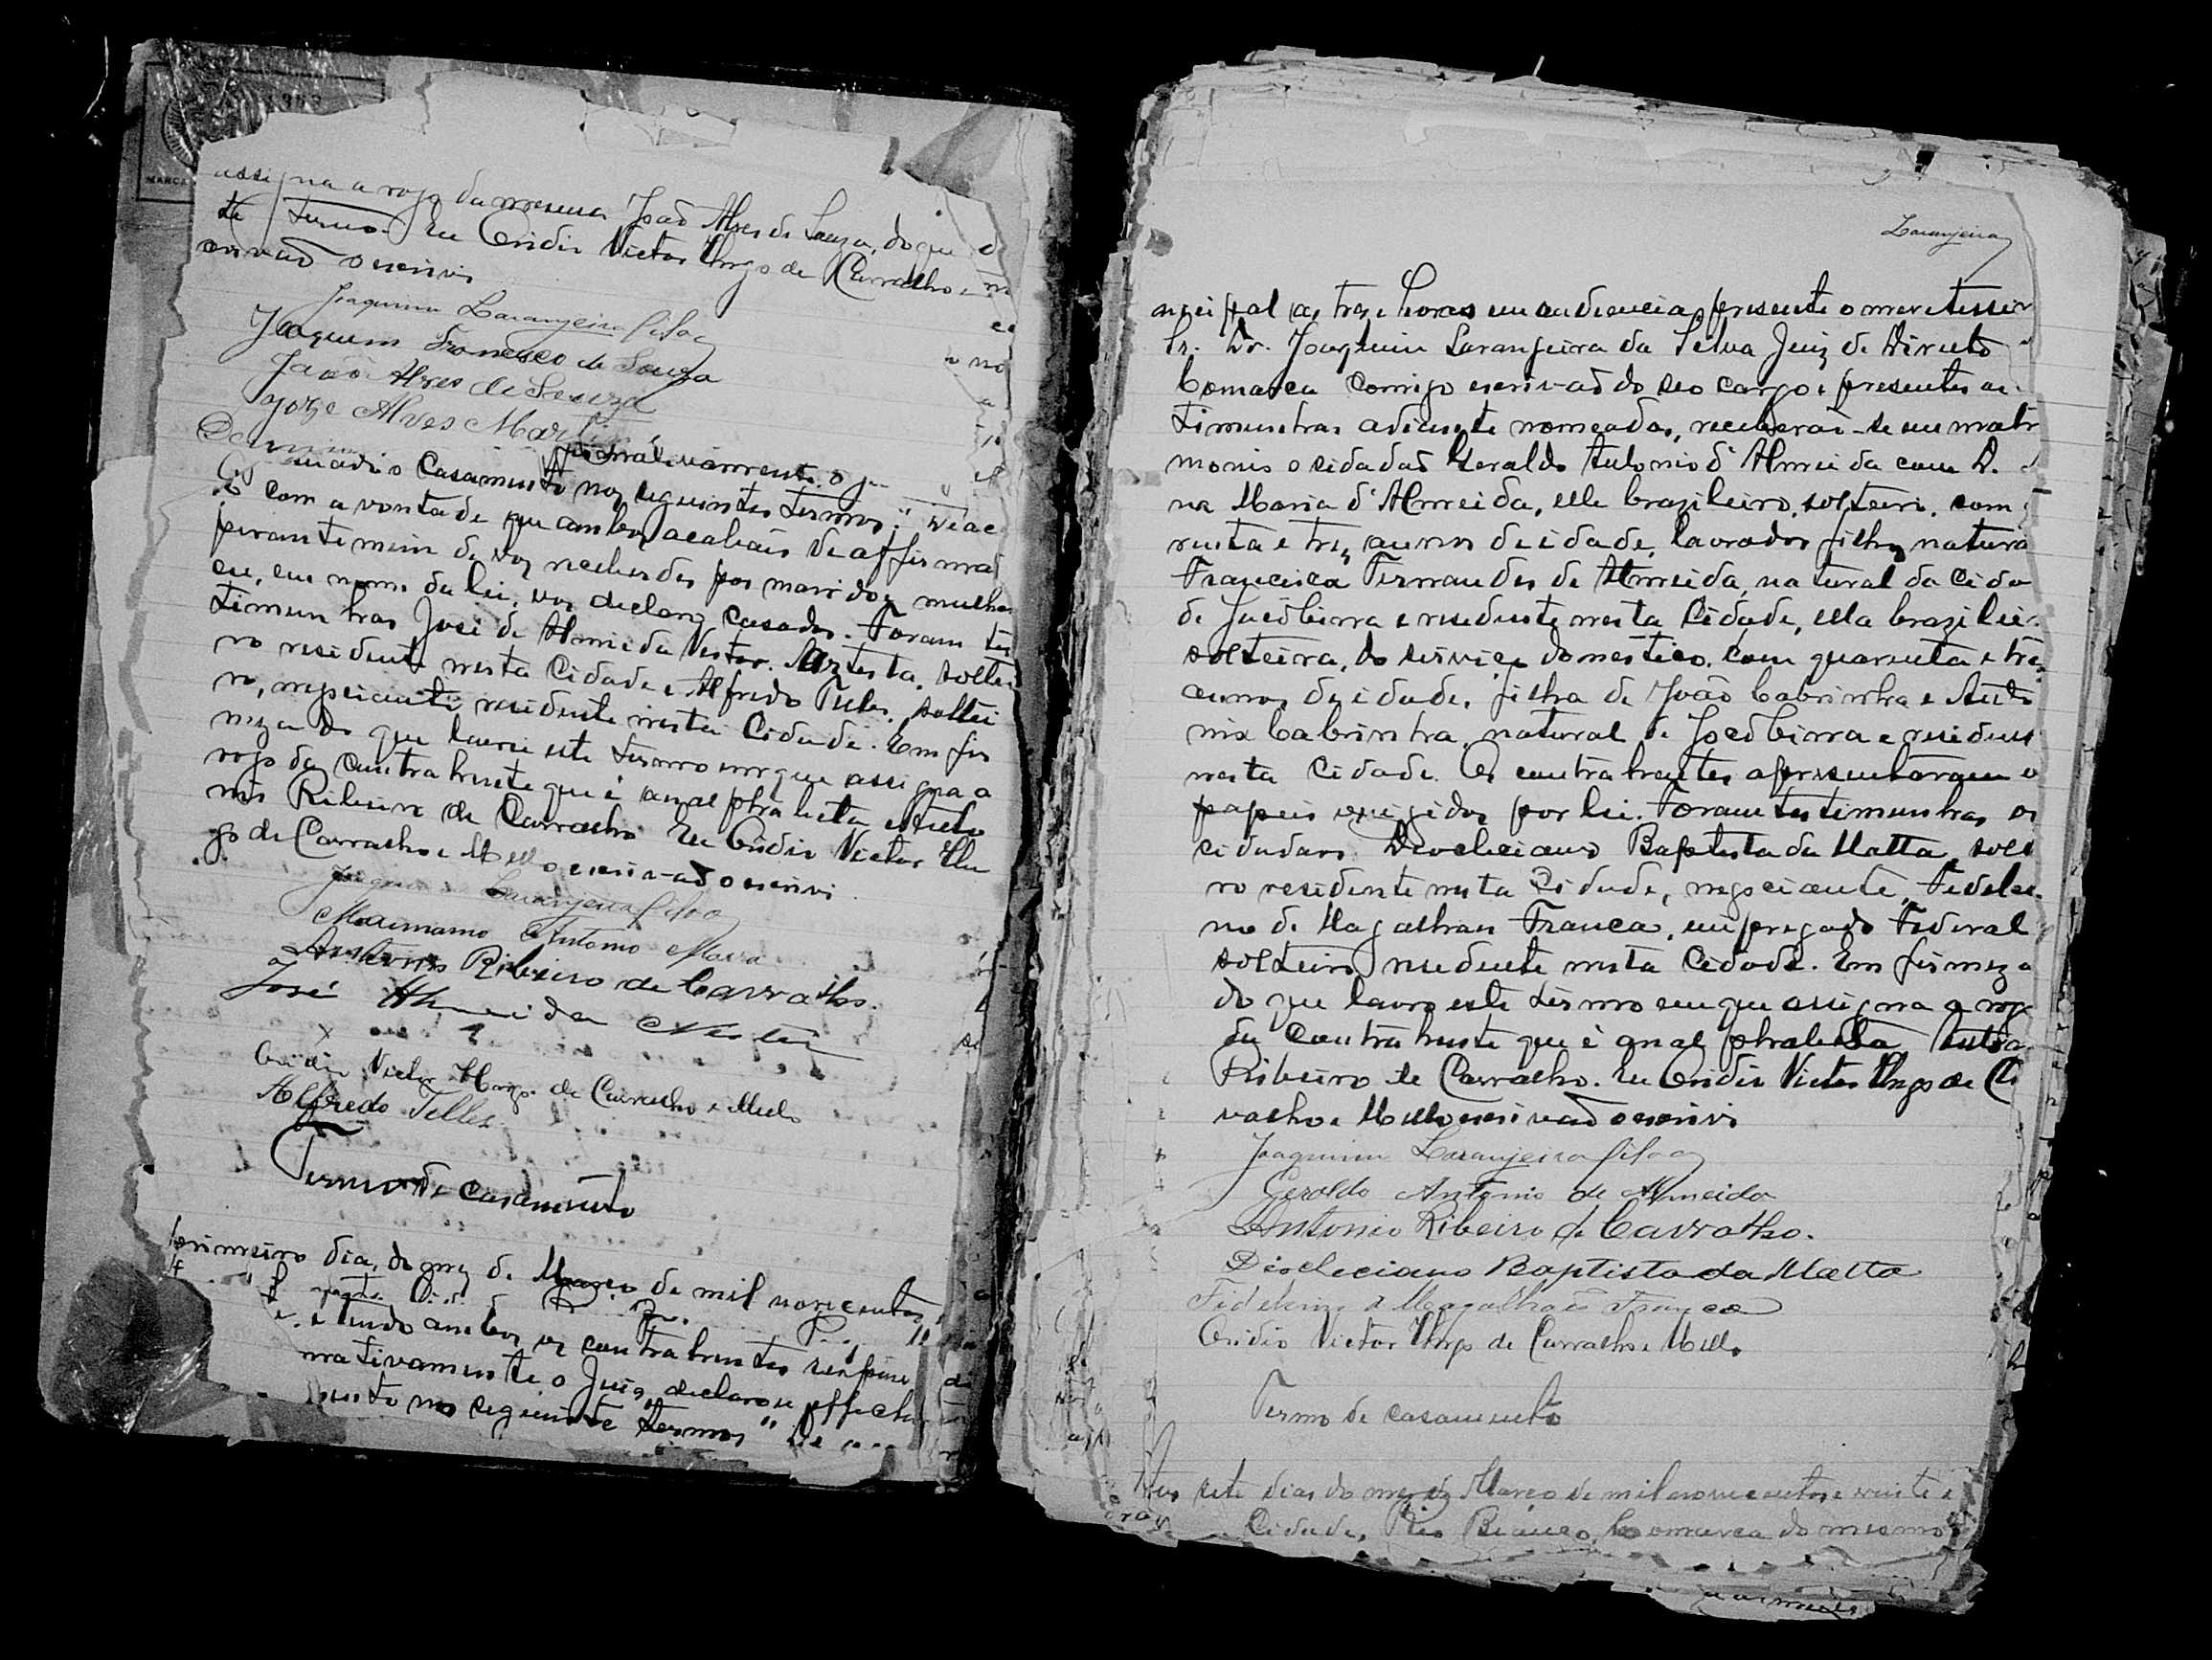 MARCA
assigna a rogo da mesma João Alves de Souza, do que
te termo. Eu Ovidio Victor Hugo de Carvalho e
escrivaõ o escrivi
Joaquim Laranjeira Silva
Joaquim Francisco de Souza
João Alves de Souza
Jorge Alves Martins
mativamente. O
o casamento nos seguintes termos: "De ac
com a vontade que ambos acabais de affirmar
perante mim de vos receberdes por marido e mulher
eu, em nome da lei, vos declaro casados. Foram tes
timunhas José de Almeida Nestor. Artista, soltei
ro residente nesta Cidade e Alfredo Teles, soltei
ro, negociante residente nesta Cidade. Em fir
meza do que lavrei este termo em que assigna a
rogo da contrahente que é analphabeta Anto
nio Ribeiro de Carvalho Eu Ovidio Victor Hu
go de Carvalho e Mello escrivaõ o escrivi.
Joaquim Laranjeira Silva
Antonio
Antonio Ribeiro de Carvalho.
José Almeida Nestor
Ovidio Victor Hugo de Carvalho e Mello
Alfredo Telles
Termo de casamento
primeiro dia, do mez de Março de mil novecentos
e, e tendo ambos os contrahentes respon
mativamente, o Juiz declarou effectu
mento nos seguinte termos "De
Laranjeira
nicipal as treze horas em audiencia, presente o meretissimo
Sr. Dr. Joaquim Laranjeira da Silva Juiz de Direito
Comarca comigo escrivaõ do seo cargo e presentes as
timunhas adiante nomeadas, receberaõ-se em matr
monio o cidadaõ Geraldo Antonio d'Almeida com D.
na Maria d'Almeida, elle brazileiro, solteiro, com
renta e tres annos de idade, lavrador filho natura
Francisca Fernandes de Almeida, natural da Cida
de residente nesta Cidade, ella brazilei
solteira, do serviço domestico, com quarenta e tre
annos de idade, filha de João Cabrinha e Anto
nia Cabrinha, natural de e residen
nesta Cidade. Os contrahentes apresentaram o
papeis exigidos por lei. Foram testimunhas os
cidadaos Diocleciano Baptista da Matta, solt
ro residente nesta Cidade, negociante, Fideli
no de Magalhaes Franca, empregado Federal
solteiro residente nesta Cidade. Em firmeza
do que lavro este termo em que assigna a rogo
da contrahente que é analphabeta Anto
Ribeiro de Carvalho. Eu Ovidio Victor Hugo de C
valho e Mello escrivaõ o escrivi
Joaquim Laranjeira Silva
Geraldo Antonio de Almeida
Antonio Ribeiro de Carvalho.
Diocleciano Baptista da Matta
Fidelino de Magalhaes Franca
Ovidio Victor Hugo de Carvalho e Mello
Termo de casamento
Aos sete dias do mez de Março de mil novecentos e vinte e
Cidade, Rio Branco, Comarca do mesmo